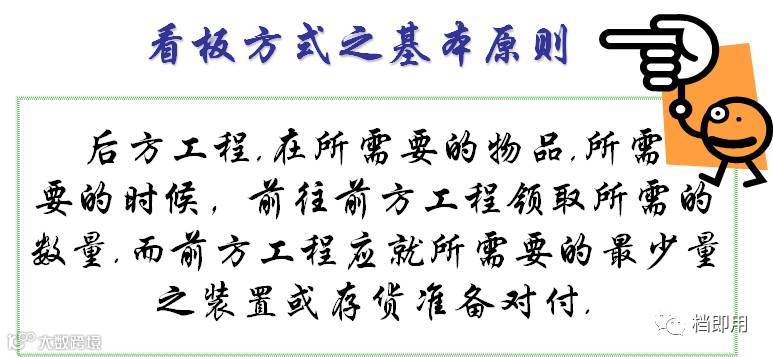 看板方式之基本原则
后方工程,在所需要的物品,所需
要的时候，前往前方工程领取所需的
数量,而前方工程应就所需要的最少量
之装置或存货准备对付.
档即用
大数跨境